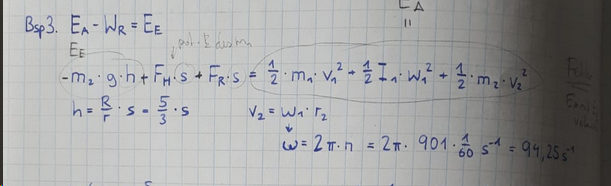 E_A
"
Bsp3. E_A - W_R = E_E
E_E
-m₂·g·h + F_H·s + F_R·s = 1/2·m₁·v₁² + 1/2 I₁·ω₁² + 1/2·m₂·v₂²
h = R/r·s = 5/3·s
v₂ = ω₁·r₂
ω = 2π·n = 2π·901·1/60 s⁻¹ = 94,25 s⁻¹